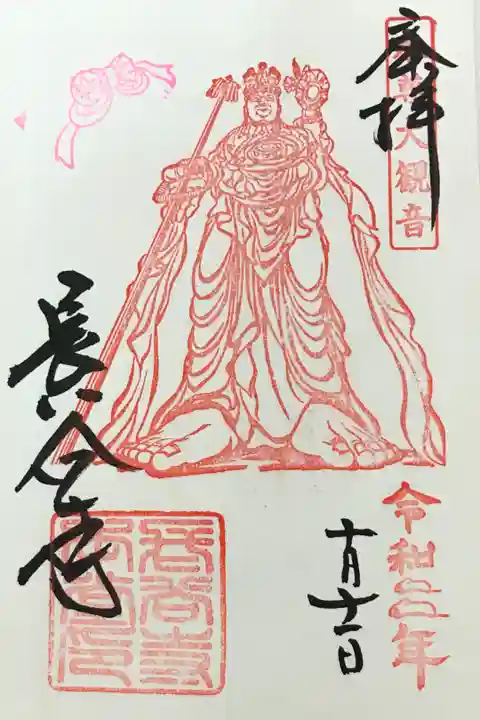 奉拝
大観音
長谷寺
令和 年
十月十一日
長谷寺